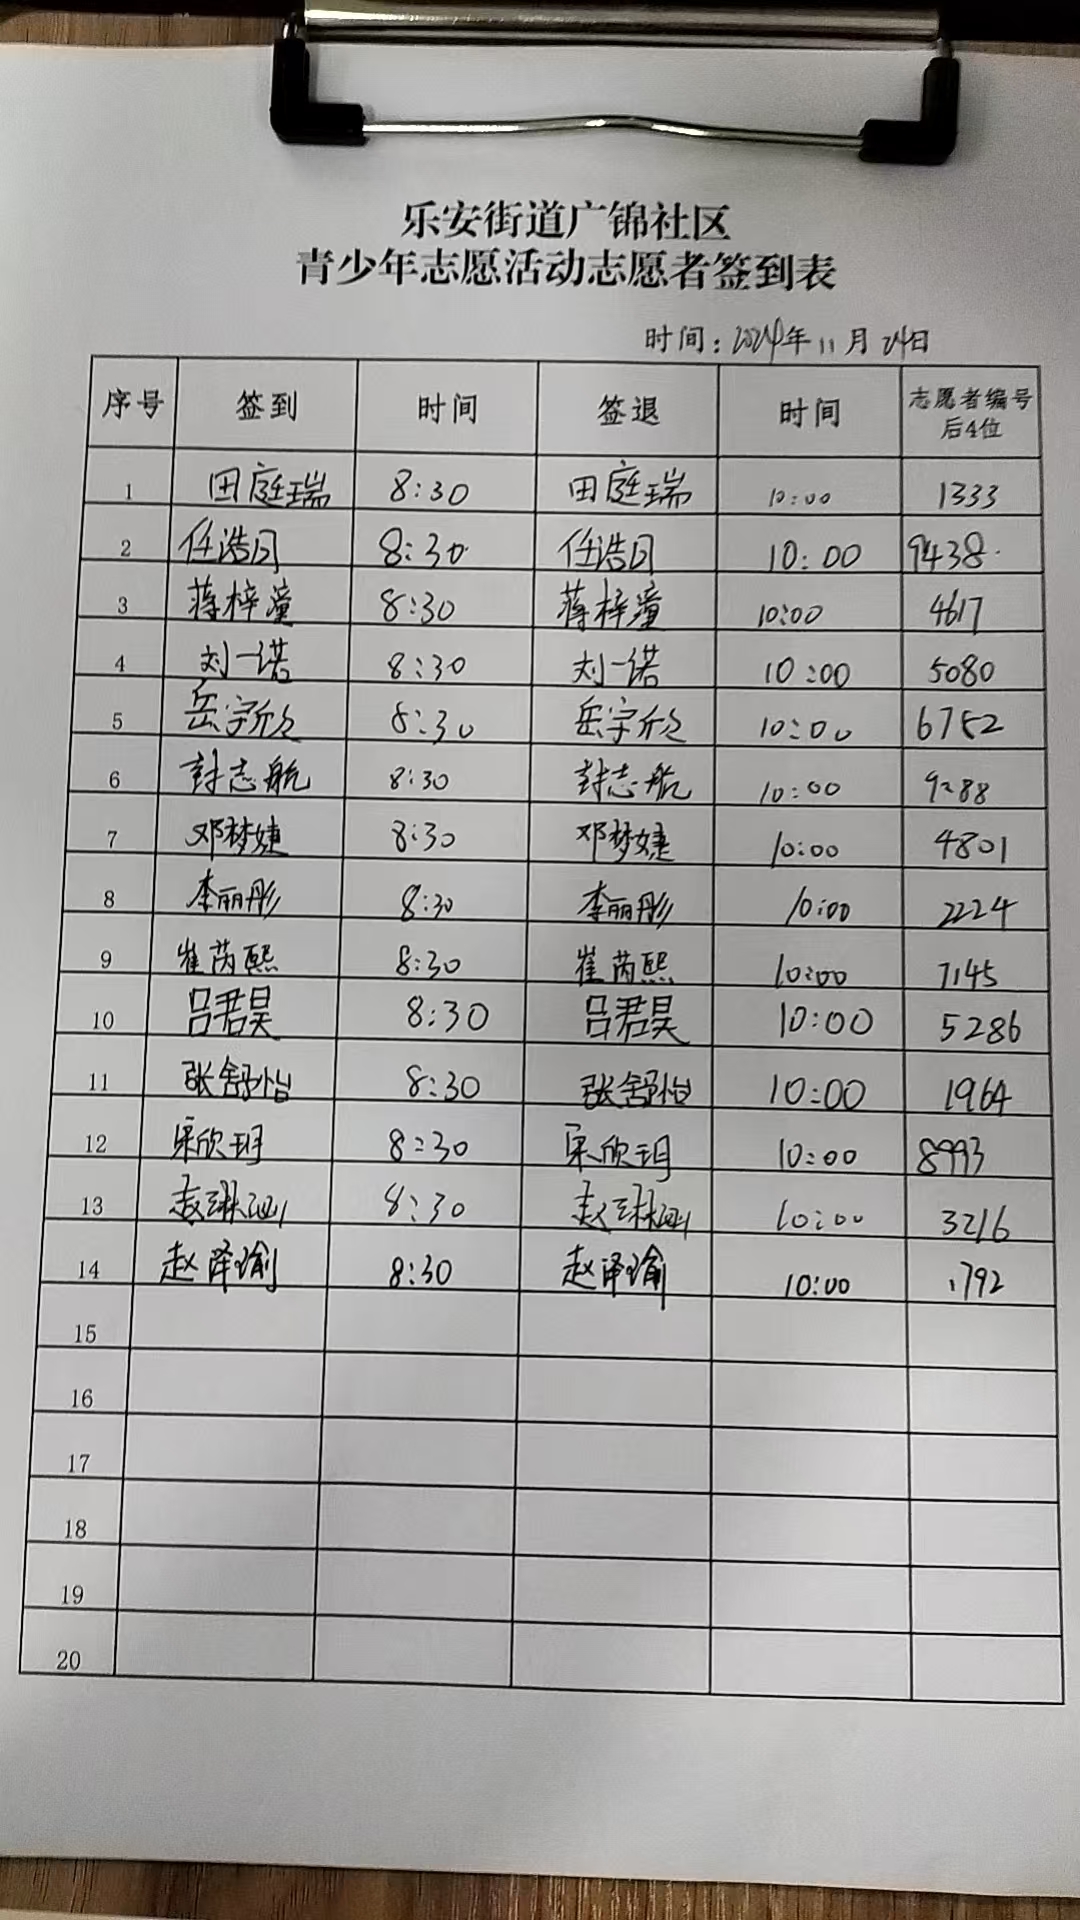 乐安街道广锦社区
青少年志愿活动志愿者签到表
时间：2024年11月24日
序号 签到 时间 签退 时间 志愿者编号后4位
1 田庭瑞 8:30 田庭瑞 10:00 1333
2 任浩月 8:30 任浩月 10:00 9438
3 蒋梓潼 8:30 蒋梓潼 10:00 4617
4 刘一诺 8:30 刘一诺 10:00 5080
5 岳宇欣 8:30 岳宇欣 10:00 6752
6 封志航 8:30 封志航 10:00 9288
7 邓梦婕 8:30 邓梦婕 10:00 4801
8 李丽彤 8:30 李丽彤 10:00 2224
9 崔芮熙 8:30 崔芮熙 10:00 7145
10 吕君昊 8:30 吕君昊 10:00 5286
11 张舒怡 8:30 张舒怡 10:00 1964
12 宋欣玥 8:30 宋欣玥 10:00 8993
13 赵琳 8:30 赵琳 10:00 3216
14 赵泽瑜 8:30 赵泽瑜 10:00 1792
15
16
17
18
19
20